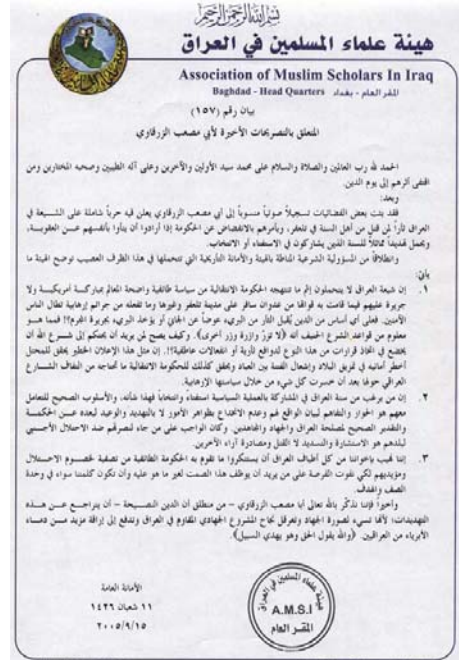 بسم الله الرحمن الرحيم
هيئة علماء المسلمين في العراق
Association of Muslim Scholars In Iraq
Baghdad - Head Quarters المقر العام - بغداد
بيان رقم (١٥٧)
المتعلق بالتصريحات الأخيرة لأبي مصعب الزرقاوي
الحمد لله رب العالمين والصلاة والسلام على محمد سيد الأولين والآخرين وعلى آله الطيبين وصحبه المختارين ومن
اقتفى أثرهم إلى يوم الدين.
وبعد:
فقد بثت بعض الفضائيات تسجيلاً صوتياً منسوباً إلى أبي مصعب الزرقاوي يعلن فيه حرباً شاملة على الشيعة في
العراق ثأراً لمن قتل من أهل السنة في تلعفر، ويأمرهم بالانفضاض عن الحكومة إذا أرادوا أن ينأوا بأنفسهم عن العقوبة،
ويحمل تهديداً مماثلاً للسنة الذين يشاركون في الاستفتاء أو الانتخاب.
وانطلاقاً من المسؤولية الشرعية المناطة بالهيئة والأمانة التأريخية التي تتحملها في هذا الظرف العصيب توضح الهيئة ما
يأتي:
١. إن شيعة العراق لا يتحملون إثم ما تنتهجه الحكومة الانتقالية من سياسة طائفية واضحة المعالم بمباركة أمريكية ولا
جريرة عليهم فيما قامت به قواتها من عدوان سافر على مدينة تلعفر وغيرها وما تفعله من جرائم إرهابية تطال الناس
الآمنين. فعلى أي أساس من الدين يُقبل الثأر من البريء، عوضاً عن الجاني أو يؤخذ البريء بجريرة المجرم؟! فمما هو
معلوم من قواعد الشرع الحنيف أنه ﴿لا تزر وازرة وزر أخرى﴾. وكيف يصح لمن يريد أن يحتكم إلى شرع الله أن
يخضع في اتخاذ قرارات من هذا النوع لدوافع ثأرية أو انفعالات عاطفية؟!. إن مثل هذا الإعلان الخطير يحقق للمحتل
أخطر أمانيه في تمزيق البلاد وإشعال الفتنة بين العباد ويحقق كذلك للحكومة الانتقالية ما تحتاجه من التفاف الشارع
العراقي حولها بعد أن خسرت كل شيء من خلال سياستها الإرهابية.
٢. إن من يرغب من سنة العراق في المشاركة بالعملية السياسية استفتاء وانتخاباً فهذا شأنه، والأسلوب الصحيح للتعامل
معهم هو الحوار والتفاهم لبيان الواقع لهم وعدم الانخداع بظواهر الأمور لا بالتهديد والوعيد لبعده عن الحكمة
والتقدير الصحيح لمصلحة العراق والجهاد والمجاهدين. وكان الواجب على من جاء لنصرتهم ضد الاحتلال الأجنبي
لبلدهم هو الاستشارة والتسديد لا القتل ومصادرة آراء الآخرين.
٣. إننا نهيب بإخواننا من كل أطياف العراق أن يستنكروا ما تقوم به الحكومة الطائفية من تصفية لخصوم الاحتلال
ومؤيديهم لكي نفوت الفرصة على من يريد أن يوظف هذا الصمت لغير ما هو عليه وأن تكون كلمتنا سواء في وحدة
الصف والهدف.
وأخيراً فإننا نذكّر بالله تعالى أبا مصعب الزرقاوي – من منطلق أن الدين النصيحة – أن يتراجع عن هذه
التهديدات؛ لأنها تسيء لصورة الجهاد وتعرقل نجاح المشروع الجهادي المقاوم في العراق وتدفع إلى إراقة مزيد من دماء
الأبرياء من العراقيين. ﴿والله يقول الحق وهو يهدي السبيل﴾.
الأمانة العامة
١١ شعبان ١٤٢٦
٢٠٠٥/٩/١٥
هيئة علماء المسلمين في العراق
A.M.S.I
المقر العام